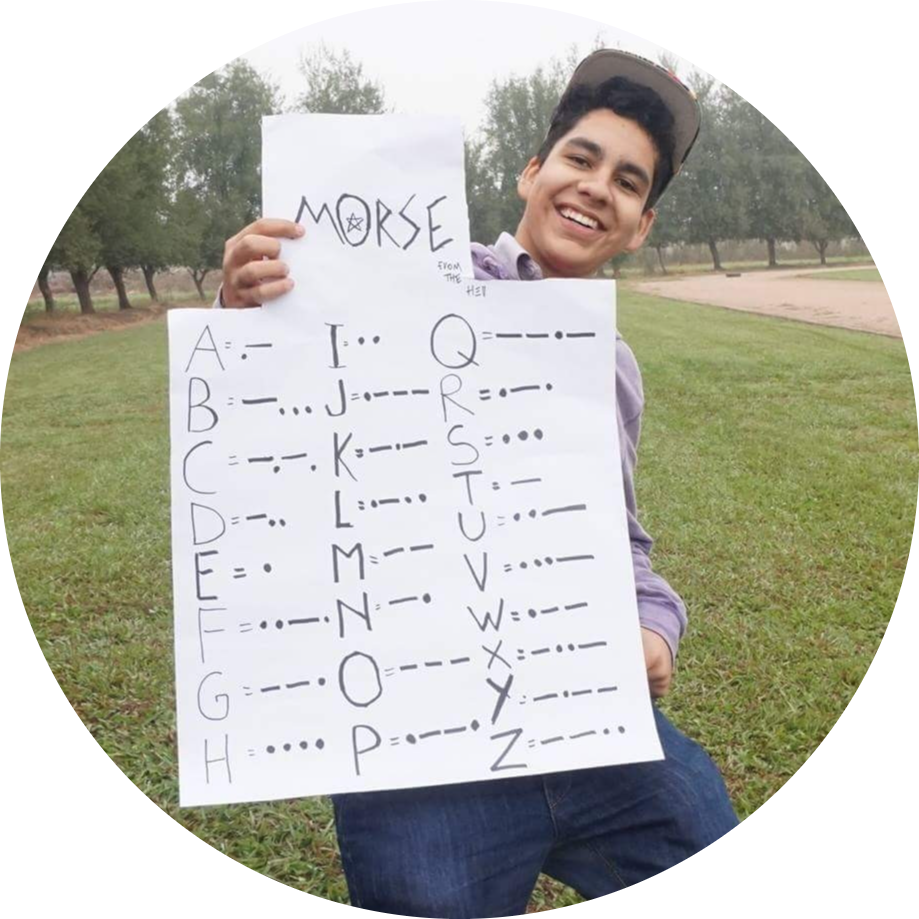 MORSE
FROM
THE
HED
A = .—
B = —...
C = —.—.
D = —..
E = .
F = ..—.
G = ——.
H = ....
I = ..
J = .———
K = —.—
L = .—..
M = ——
N = —.
O = ———
P = .——.
Q = ——.—
R = .—.
S = ...
T = —
U = ..—
V = ...—
W = .——
X = —..—
Y = —.——
Z = ——..